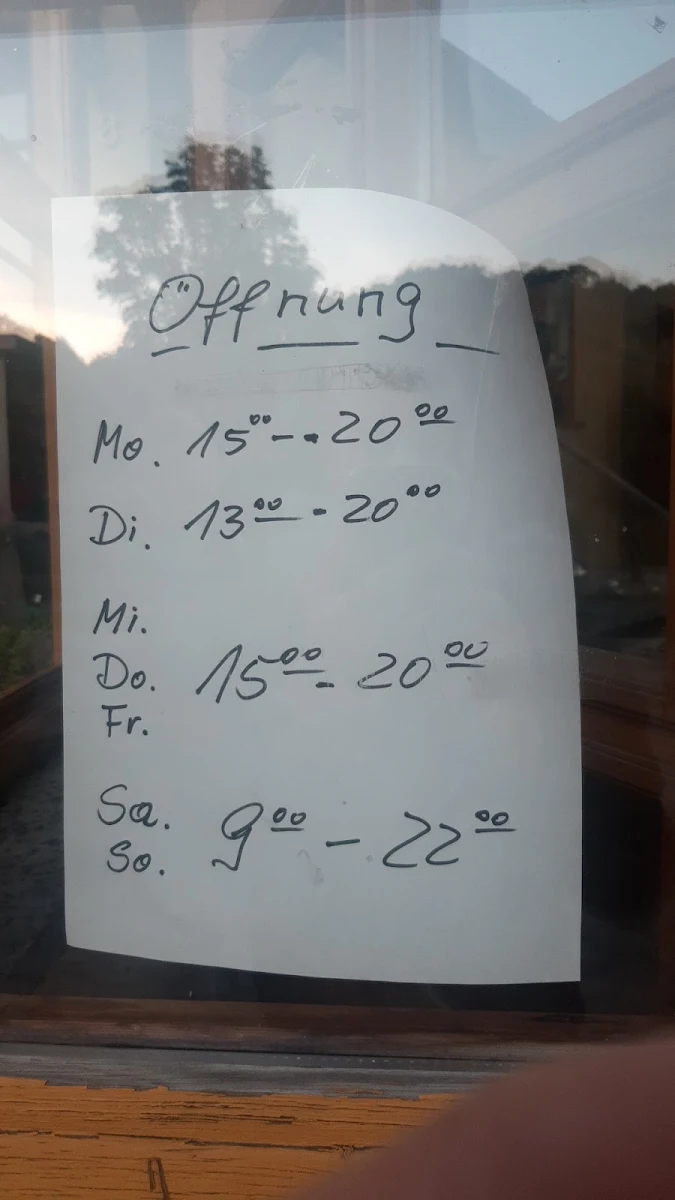 Öffnung
Mo. 15⁰⁰ - - 20⁰⁰
Di. 13⁰⁰ - 20⁰⁰
Mi.
Do. 15⁰⁰ - 20⁰⁰
Fr.
Sa. 9⁰⁰ - 22⁰⁰
So.